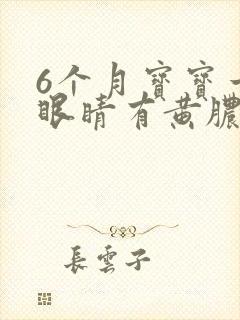 6个月寶寶
眼睛有黃膿
長雲子